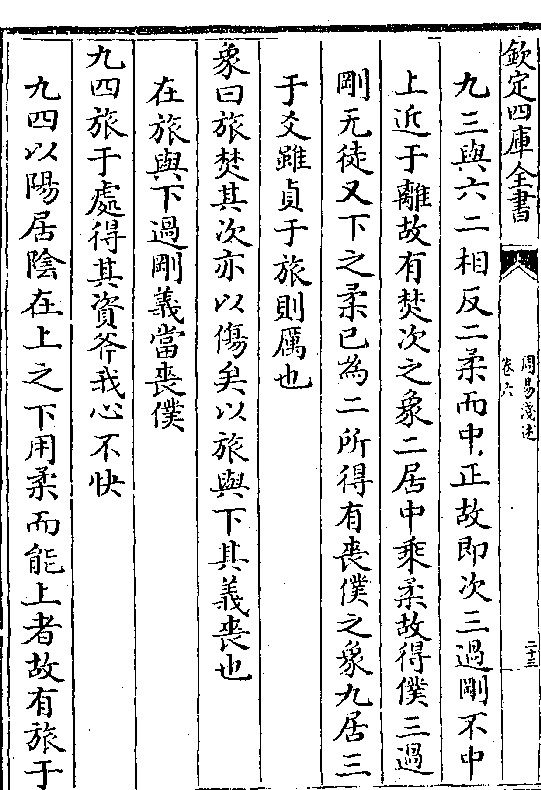 欽定四庫全書
周易淺述
卷六
二十三
九三與六二相反二柔而中正故即次三過剛不中
上近于離故有焚次之象二居中乘柔故得僕三過
剛无徒又下之柔已為二所得有喪僕之象九居三
于爻雖貞于旅則厲也
象曰旅焚其次亦以傷矣以旅與下其義喪也
在旅與下過剛義當喪僕
九四旅于處得其資斧我心不快
九四以陽居陰在上之下用柔而能上者故有旅于